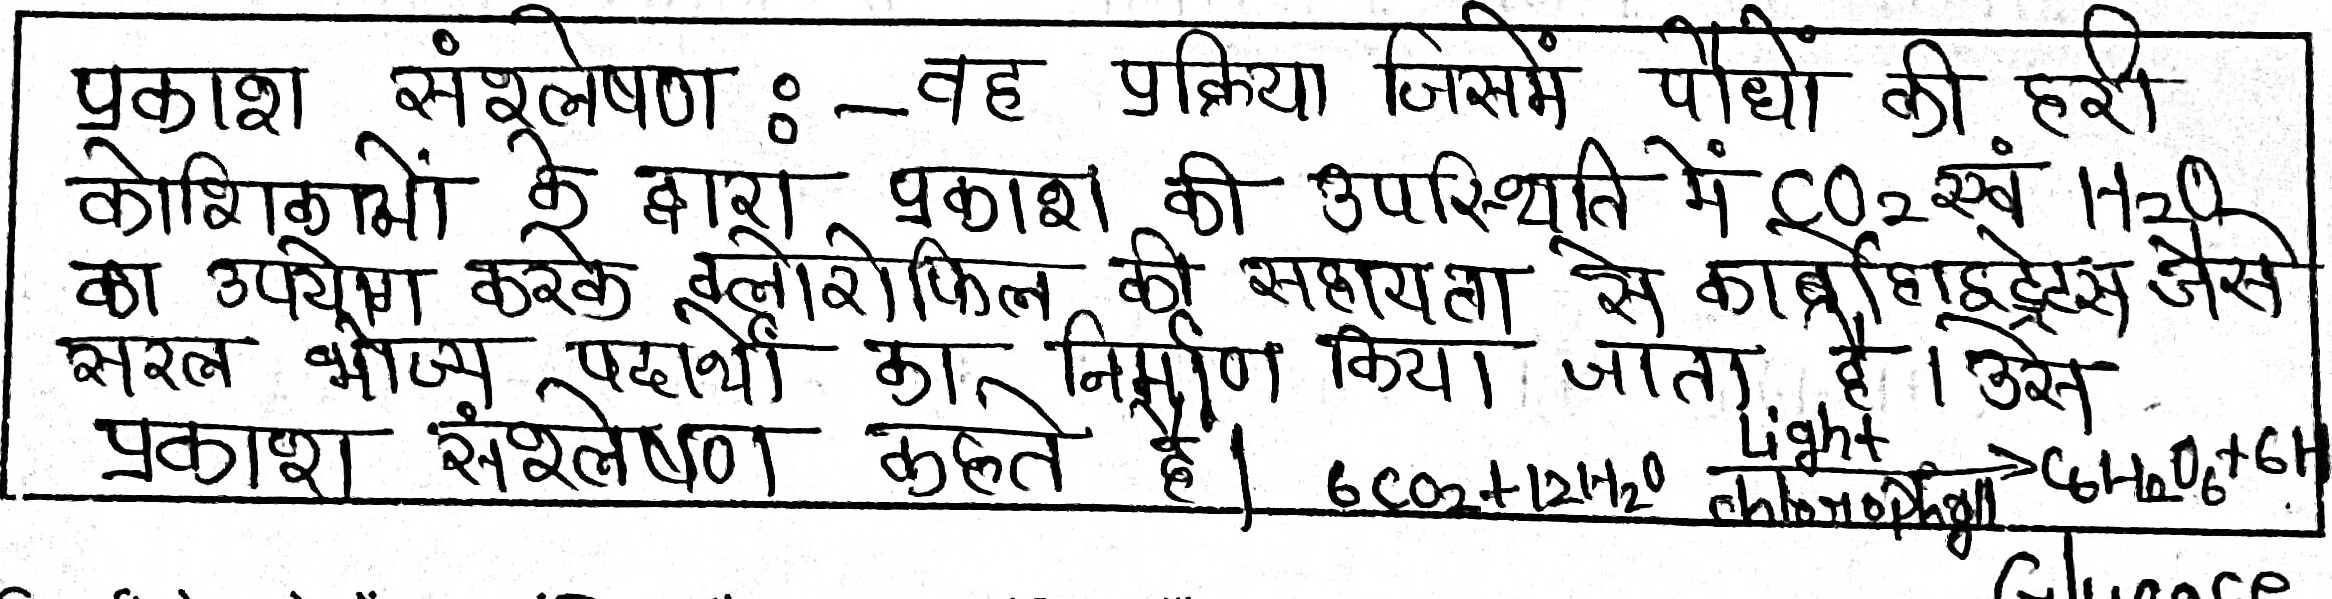 प्रकाश संश्लेषण :- वह प्रक्रिया जिसमें पौधों की हरी
कोशिकाओं के द्वारा प्रकाश की उपस्थिति में CO₂ एवं H₂O
का उपयोग करके क्लोरोफिल की सहायता से कार्बोहाइड्रेट्स जैसे
सरल भोज्य पदार्थों का निर्माण किया जाता है। उसे
प्रकाश संश्लेषण कहते है। 6CO₂+12H₂O Light chlorophyll → C₆H₁₂O₆+6H
Glucose